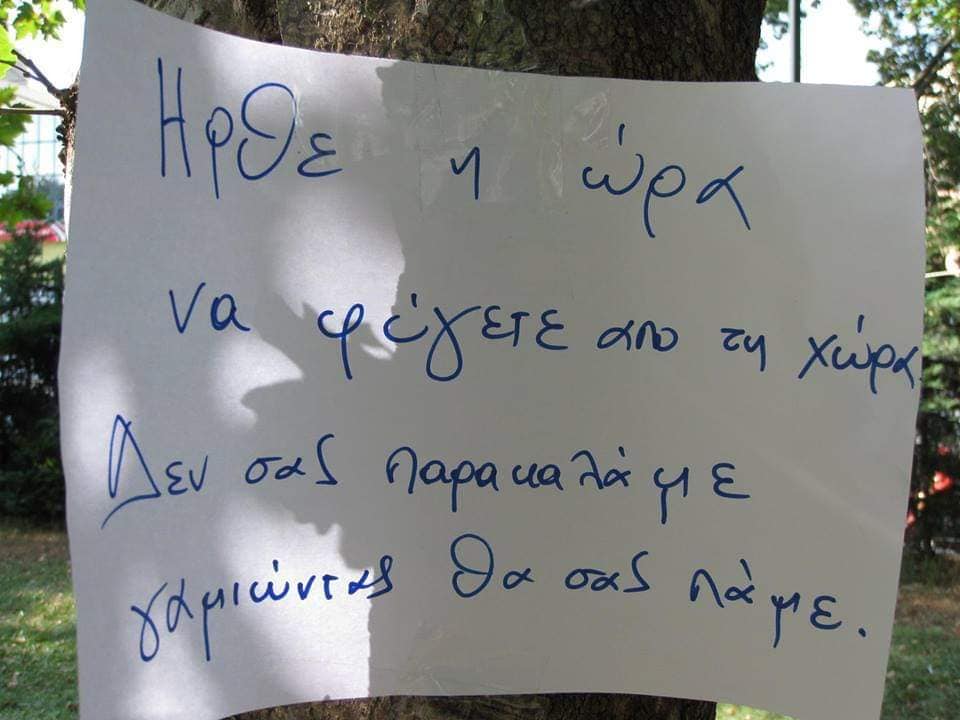 Ηρθε η ώρα
να φύγετε απο τη χώρα.
Δεν σας παρακαλάμε
γαμιώντας θα σας πάμε.